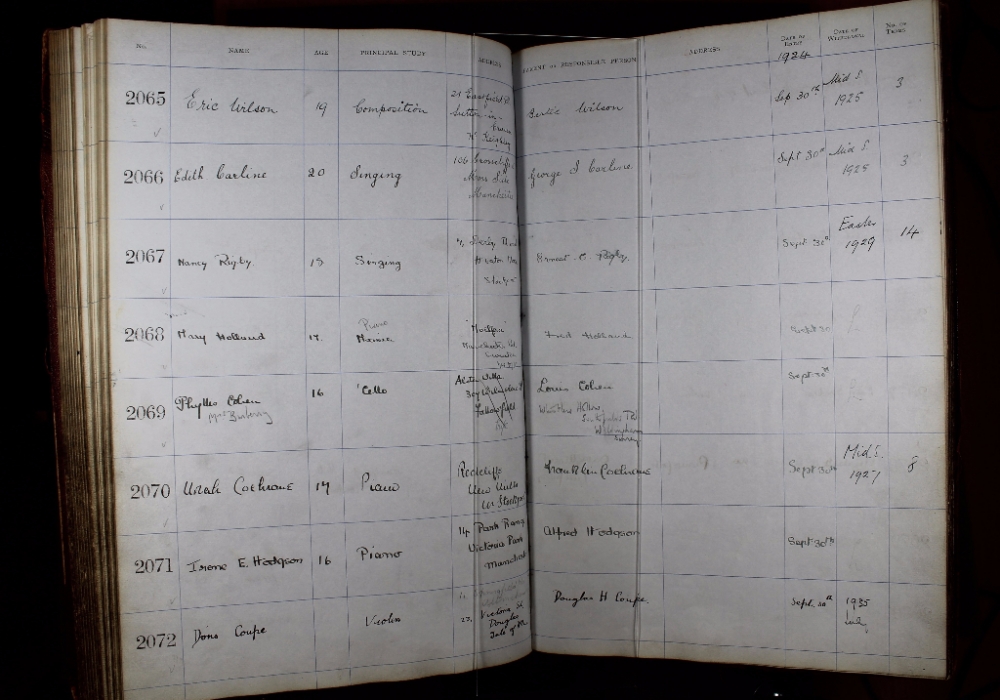 No. NAME AGE PRINCIPAL STUDY ADDRESS PARENT OR RESPONSIBLE PERSON ADDRESS DATE OF ENTRY DATE OF WITHDRAWAL NO. OF TERMS
1924
2065 Eric Wilson 19 Composition Sutton-in- Wilson Sep 30th Mid S 1925 3
2066 Edith Carline 20 Singing 106 Moss Side Manchester George S Carline Sept 30th Mid S 1925 3
2067 Nancy Rigby Singing Ernest C. Rigby Sept 30th Easter 1929 14
2068 Mary Holland 17 Piano Fred Holland Sept 30
2069 Phyllis Cohen 16 'Cello Fallowfield Louis Cohen Sept 30th
2070 Norah Cochrane 17 Piano Redcliffe New Mills Nr Stockport Franklin Cochrane Sept 30th Mid S. 1927 8
2071 Irene E. Hodgson 16 Piano 14 Park Range Victoria Park Manchester Alfred Hodgson Sept 30th
2072 Dora Coupe Violin 22, Victoria St Douglas Isle of Man Douglas H Coupe. Sept. 30th 1935 July